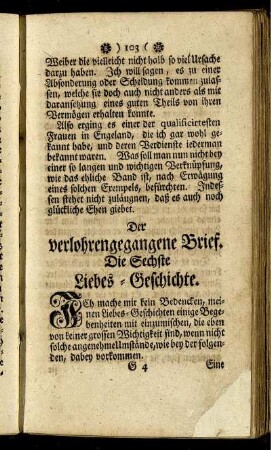 ❁ ) 103 ( ❁
Weiber die vielleicht nicht halb so viel Ursache
darzu haben. Jch will sagen, es zu einer
Absonderung oder Scheidung kommen zulas-
sen, welche sie doch auch nicht anders als mit
daransetzung eines guten Theils von ihren
Vermögen erhalten konnte.
Also erging es einer der qualificirtesten
Frauen in Engeland, die ich gar wohl ge-
kannt habe, und deren Verdienste iederman
bekannt waren. Was soll man nun nicht bey
einer so langen und wichtigen Verknüpfung,
wie das ehliche Band ist, nach Erwägung
eines solchen Exempels, befürchten. Indes-
sen stehet nicht zuläugnen, daß es auch noch
glückliche Ehen giebet.
Der
verlohrengegangene Brief.
Die Sechste
Liebes-Geschichte.
Jch mache mir kein Bedencken, mei-
nen Liebes-Geschichten einige Bege-
benheiten mit einzumischen, die eben
von keiner grossen Wichtigkeit sind, wenn nicht
solche angenehme Umstände, wie bey der folgen-
den, dabey vorkommen.
G 4 Eine